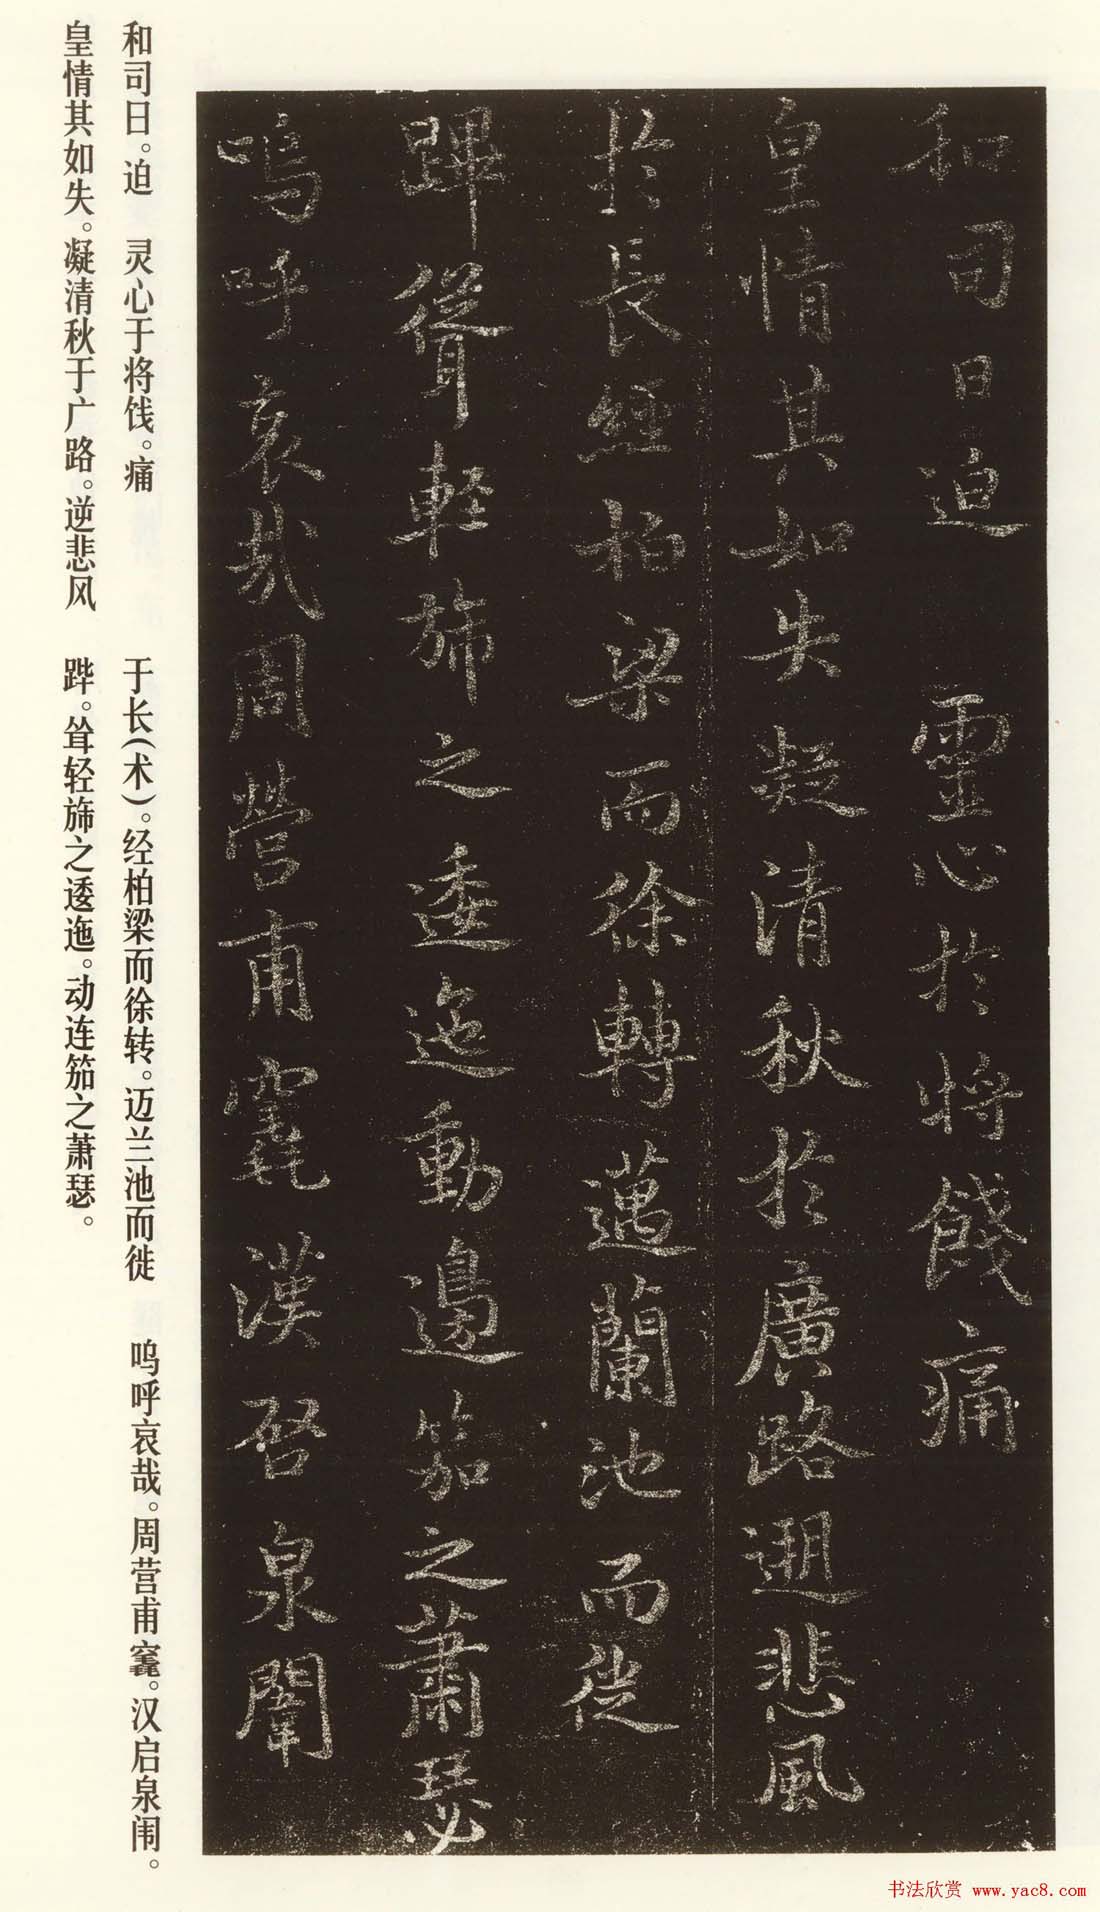 和司日迫　靈心於將餞痛
皇情其如失凝清秋於廣路遡悲風
於長經柏梁而徐轉邁蘭池而徙
蹕聳軽旆之逶迤動邊笳之蕭瑟
嗚呼哀哉周營甫窆漢啓泉闈
和司日。迫　灵心于将饯。痛
皇情其如失。凝清秋于广路。逆悲风
于长(术)。经柏梁而徐转。迈兰池而徙
跸。耸轻旆之逶迤。动连笳之萧瑟。
呜呼哀哉。周营甫窆。汉启泉闱。
书法欣赏 www.yac8.com